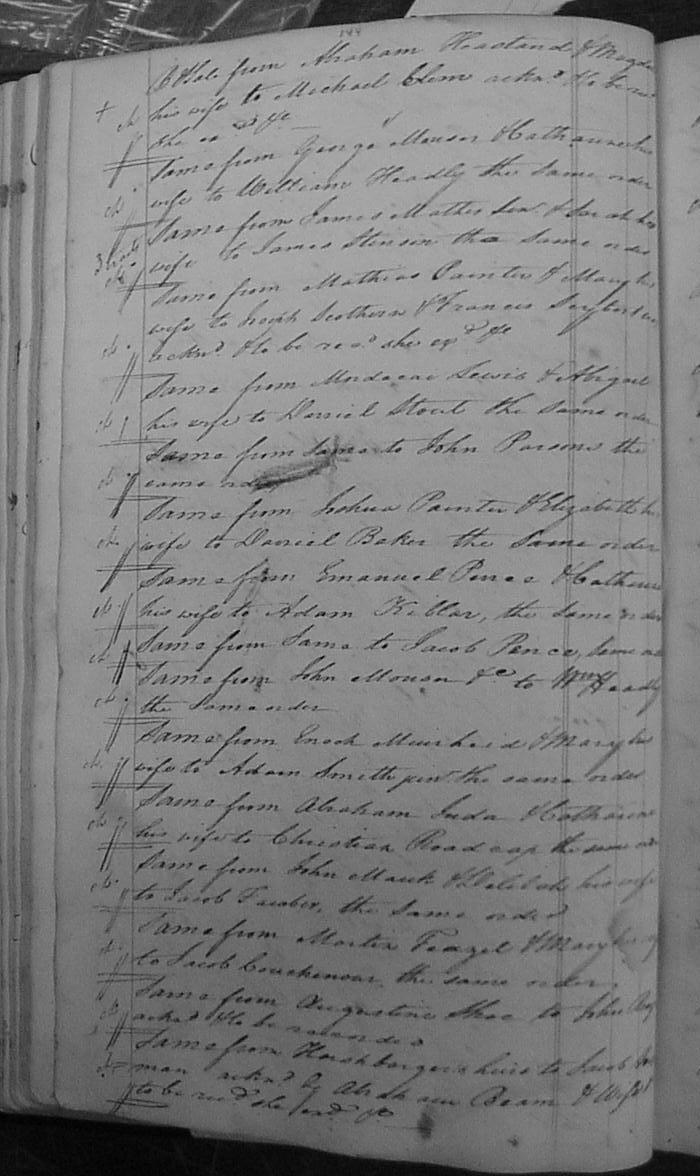 144
A Bale from Abraham Heastand & Magda
his wife to Michael Clem acknd. & to be re
she exd &c
Same from George Mouser & Catharine his
wife to William Headly the same order
Same from James Mather Sen. & Sarah his
wife to James Stinson the same order
Same from Mathias Painter & Mary his
wife to Joseph & Francis
acknd. & to be recd. she exd &c
Same from Mordecai Lewis & Abigail
his wife to Daniel Stout the same order
Same from Same to John Parsons the
same order
Same from Joshua Painter & Elizabeth h
wife to Daniel Baker the same order
Same from Emanuel Pence & Catharine
his wife to Adam Kiblar, the same order
Same from Same to Jacob Pence, same or
Same from John Mouser &c to Wm Headly
the same order
Same from Enoch Muirheid & Mary his
wife to Adam Smith junr. the same order
Same from Abraham Juda & Catharine
his wife to Christian Roadcap the same or
Same from John Mauk & his wife
to Jacob the same order
Same from Martin Feazel & Mary his
to Jacob Couchenour, the same order
Same from Augustine Shoe to John
acknd. & to be recorded
Same from Hershbarger's heirs to Jacob
man acknd by Abraham Beam & Wife
to be recd. she exd. &c